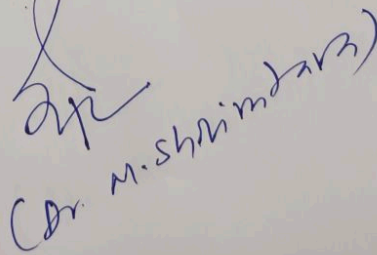 (Dr. M. Shrimtara)